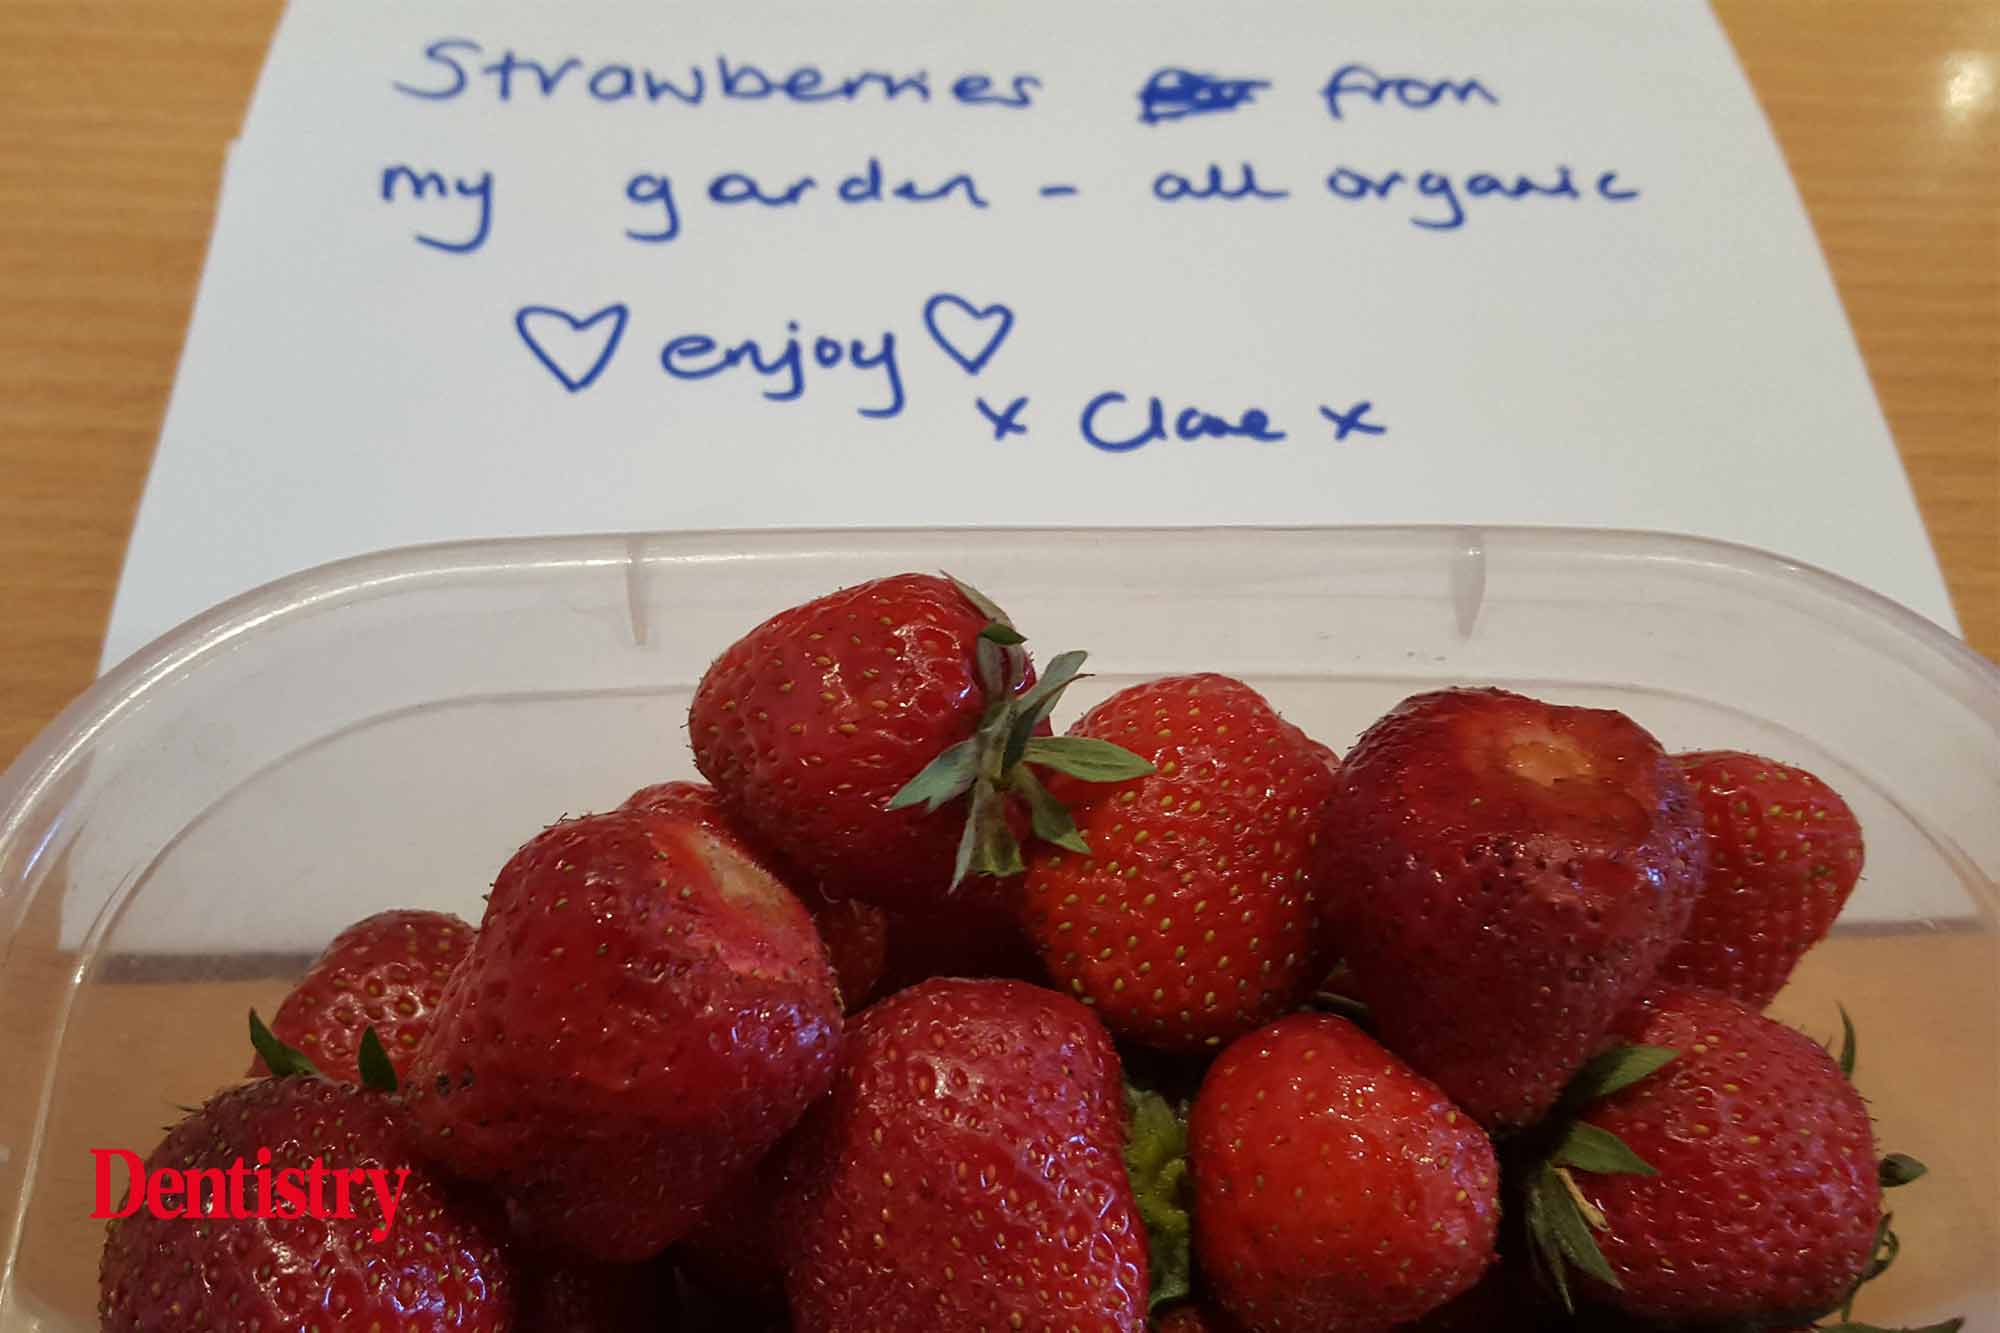 Strawberries from
my garden - all organic
♡ enjoy ♡
x Clare x
Dentistry